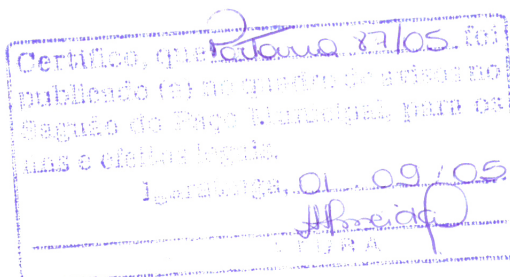 Certifico, que Portaria 87/05 foi
publicado (a) no quadro de avisos no
Saguão do Paço Municipal, para os
fins e efeitos legais.
01 . 09 / 05